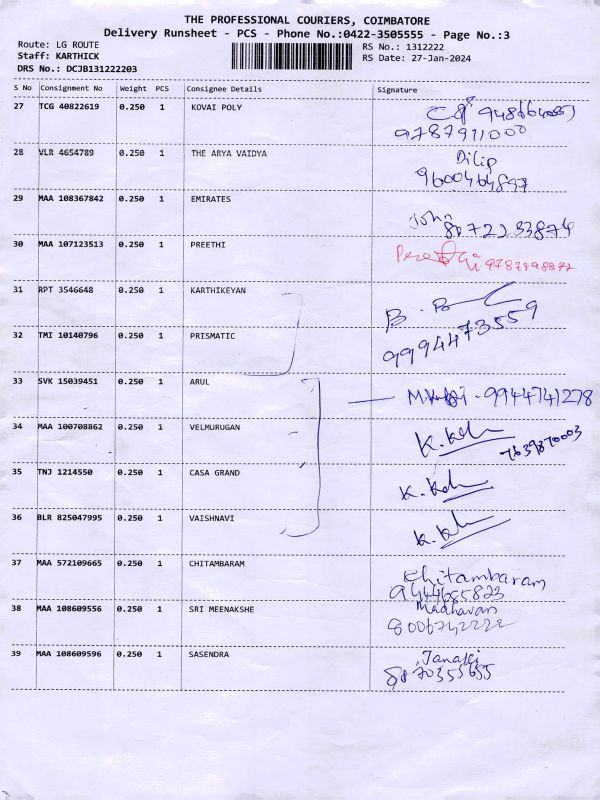 THE PROFESSIONAL COURIERS, COIMBATORE
Delivery Runsheet - PCS - Phone No.:0422-3505555 - Page No.:3
Route: LG ROUTE
RS No.: 1312222
Staff: KARTHICK
RS Date: 27-Jan-2024
DRS No.: DCJB131222203
S No Consignment No Weight PCS Consignee Details Signature
27 TCG 40822619 0.250 1 KOVAI POLY
9787911000
28 VLR 4654789 0.250 1 THE ARYA VAIDYA Dilip
9600464897
29 MAA 108367842 0.250 1 EMIRATES John
8072233874
30 MAA 107123513 0.250 1 PREETHI
31 RPT 3546648 0.250 1 KARTHIKEYAN
32 TMI 10140796 0.250 1 PRISMATIC 9994473559
33 SVK 15039451 0.250 1 ARUL 9944741278
34 MAA 100708862 0.250 1 VELMURUGAN
7639870003
35 TNJ 1214550 0.250 1 CASA GRAND
36 BLR 825047995 0.250 1 VAISHNAVI
37 MAA 572109665 0.250 1 CHITAMBARAM Chitambaram
9444685823
38 MAA 108609556 0.250 1 SRI MEENAKSHE Madhavan
8006742222
39 MAA 108609596 0.250 1 SASENDRA Janaki
8870355655